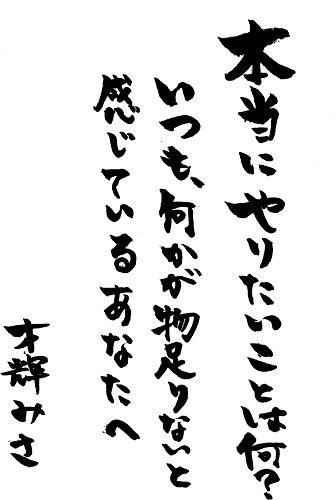 本当にやりたいことは何?
いつも、何かが物足りないと
感じているあなたへ
本輝みさ